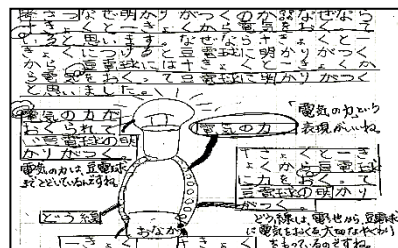 なぜ明かりがつくのか。なぜなら
+きょくと-きょくから電気をおくって
いると思います。なぜなら+きょくと-
きょくにつけると豆電球に明かりがつく
から、豆電球には+きょくと-きょくか
ら電気をおくって豆電球に明かりがつく
と思いました。
電気の力が
おくられて
豆電球の明
かりがつく。
電気の力は、豆電球
電気の力
「電気の力」という
表現がいいね。
+きょくと-き
ょくから豆電球
に力をおくって
豆電球の明かり
がつく。
どう線
どう線は、電池から、豆電球
に電気をおくる大切なやくわり
をもっているのですね。
おなか
-きょく
+きょく